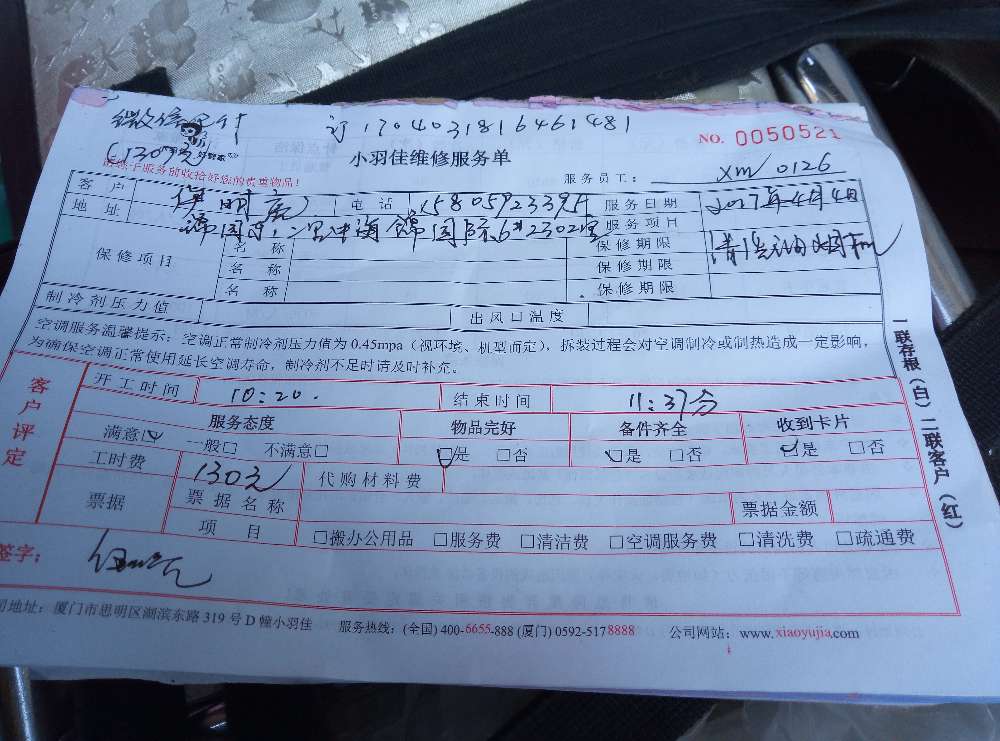 微信已付 订1704031816461481
NO. 0050521
(130元)
小羽佳维修服务单
请您于服务前收恰好您的贵重物品!
服务员工: XM/0126
客户 电话 服务日期 2017年4月4日
地址 6#2302室 服务项目 清洗油烟机
保修项目 名称 保修期限
名称 保修期限
名称 保修期限
制冷剂压力值 出风口温度
空调服务温馨提示:空调正常制冷剂压力值为0.45mpa(视环境、机型而定),拆装过程会对空调制冷或制热造成一定影响,
为确保空调正常使用延长空调寿命,制冷剂不足时请及时补充。
客户评定
开工时间 10:20. 结束时间 11:37分
服务态度 物品完好 备件齐全 收到卡片
满意☑ 一般□ 不满意□ ☑是 □否 ☑是 □否 ☑是 □否
工时费 130元 代购材料费
票据 票据名称 票据金额
项目 □搬办公用品 □服务费 □清洁费 □空调服务费 □清洗费 □疏通费
签字:
司地址:厦门市思明区湖滨东路319号D幢小羽佳 服务热线:(全国)400-6655-888 (厦门)0592-5178888 公司网站:www.xiaoyujia.com
一联存根(白)二联客户(红)